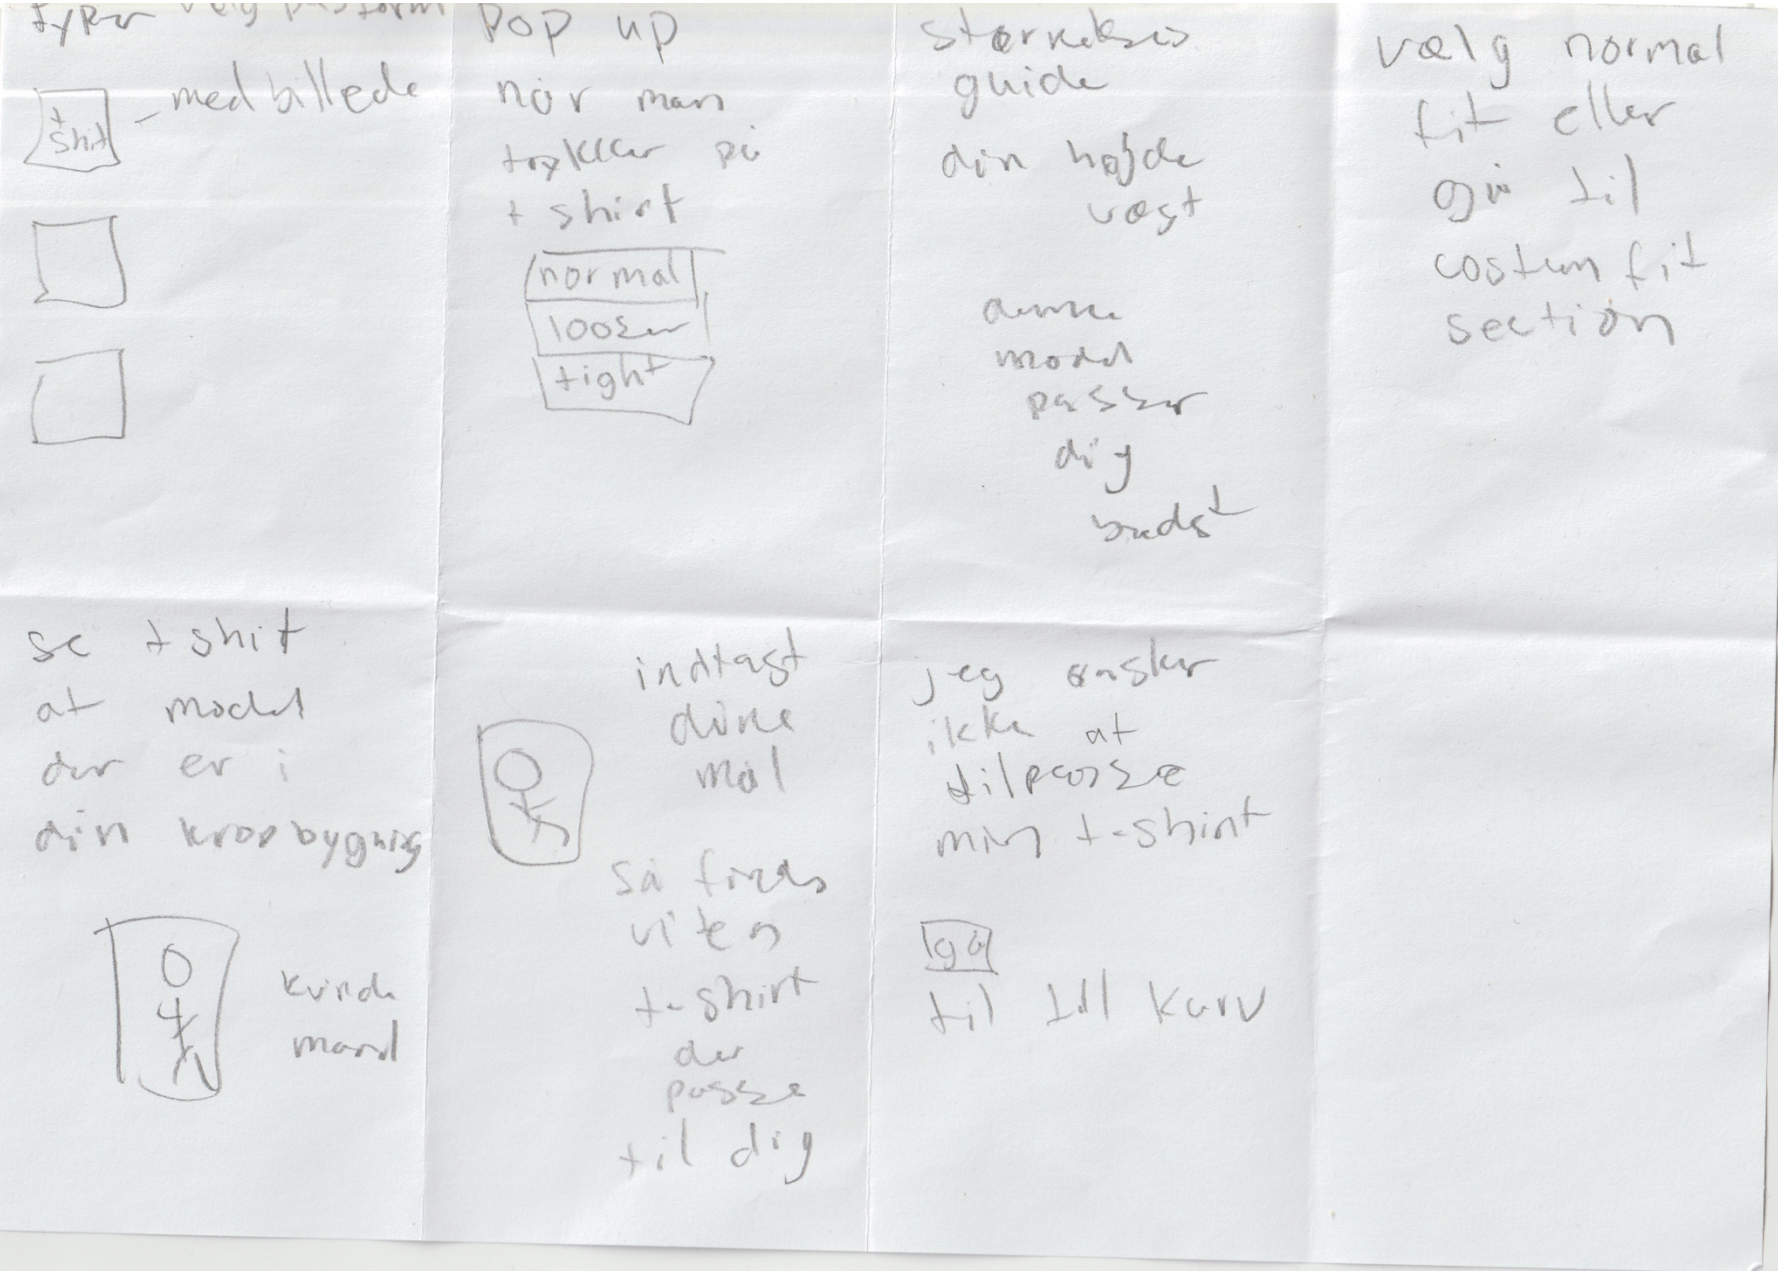 typer vælg pasform
med billede
t
shit
pop up
når man
trykker på
t shirt
normal
looser
tight
størrelses
guide
din højde
vægt
denne
model
passer
dig
bedst
vælg normal
fit eller
gå til
costum fit
section
se t shit
at model
der er i
din kropbygning
kvinde
mand
indtast
dine
mål
så finds
vi en
t-shirt
der
passe
til dig
jeg ønsker
ikke at
tilpasse
min t-shirt
gå
til till kurv